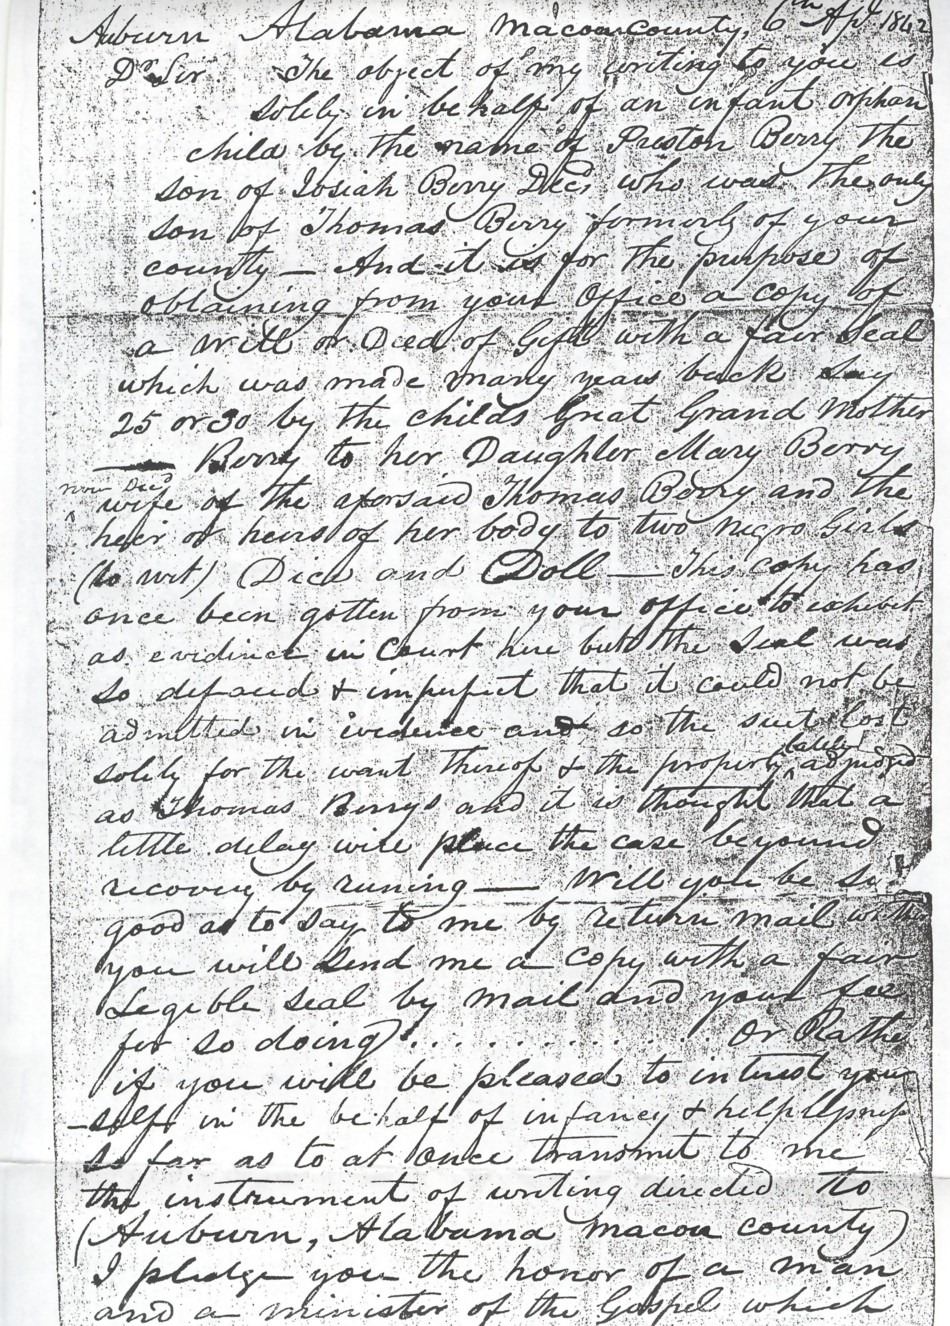 Auburn Alabama Macon County, 6th Apl 1842
Dr Sir The object of my writing to you is
solely in behalf of an infant orphan
child by the name of Preston Berry the
son of Josiah Berry Decd, who was the only
son of Thomas Berry formerly of your
county — And it is for the purpose of
obtaining from your Office a copy of
a Will or Deed of Gift with a fair Seal
which was made many years back Say
25 or 30 by the childs Great Grand Mother
—— Berry to her Daughter Mary Berry
now Decd
wife of the aforsaid Thomas Berry and the
heir or heirs of her body to two Negro Girls
(to wit) Dice and Doll — This copy has
once been gotten from your office to exhibit
as evidence in Court here but the Seal was
so defaced & imperfect that it could not be
admitted in evidence and so the suit lost
lately
solely for the want thereof & the property adjudged
as Thomas Berrys and it is thought that a
little delay will place the case beyound
recovery by runing — Will you be so
good as to say to me by return mail
you will Send me a Copy with a fair
Legible Seal by Mail and your fee
for so doing . . . . . . . . . . . . . Or Rathe
if you will be pleased to interest your
-self in the behalf of infancy & helplessness
So far as to at once transmit to me
the instrument of writing directed to
(Auburn, Alabama Macon County)
I pledge you the honor of a man
and a minister of the Gospel which